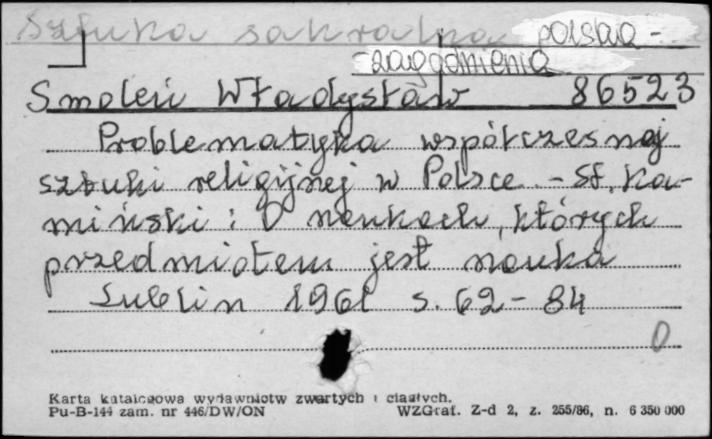 Sztuka sakralna polska -
- zagadnienia
Smoleń Władysław 86523
Problematyka współczesnej
sztuki religijnej w Polsce. - St. Ka-
miński: O naukach, których
przedmiotem jest nauka
Lublin 1961 s. 62-84
0
Karta katalogowa wydawnictw zwartych i ciągłych.
Pu-B-144 zam. nr 446/DW/ON WZGraf. Z-d 2, z. 255/86, n. 6 350 000